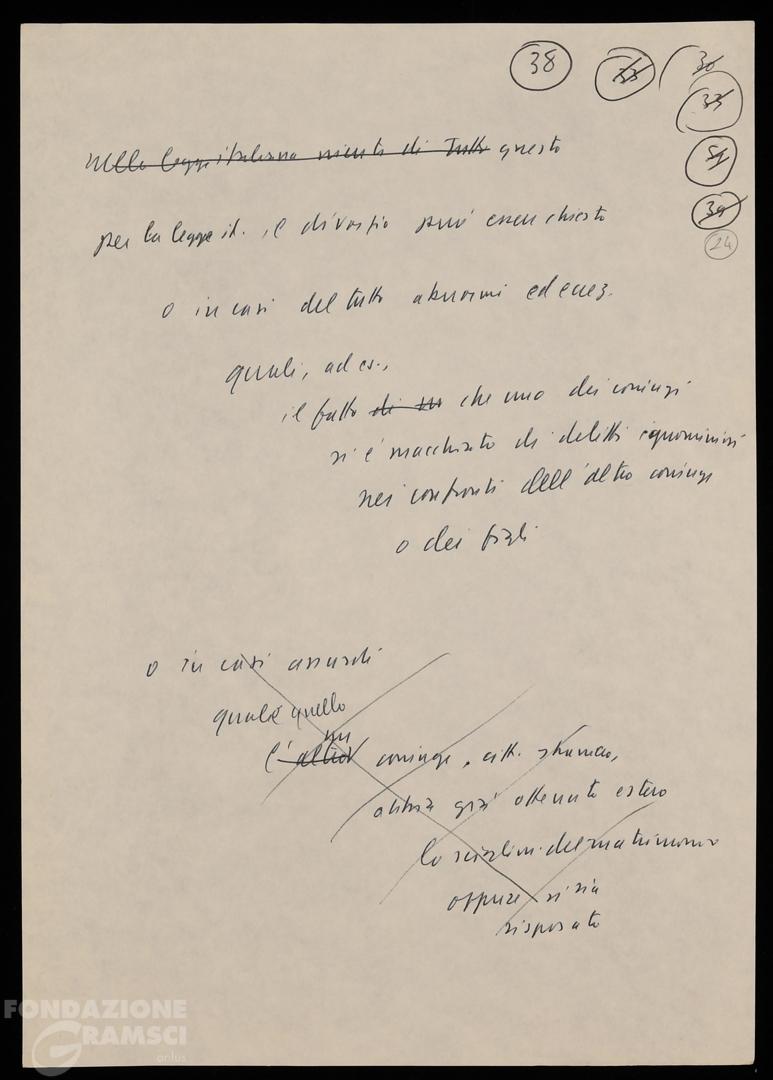 38 33 36
33
54
39
24
nella legge italiana niente di tutto questo
per la legge it. il divorzio può essere chiesto
o in casi del tutto abnormi ed ecez.
quali, ad es.,
il fatto che uno dei coniugi
si è macchiato di delitti ignominiosi
nei confronti dell'altro coniuge
o dei figli
o in casi assurdi
quale quello
un
l'altro coniuge, citt. straniero,
abbia già ottenuto estero
lo scioglim. del matrimonio
oppure si sia
risposato
FONDAZIONE
GRAMSCI
onlus